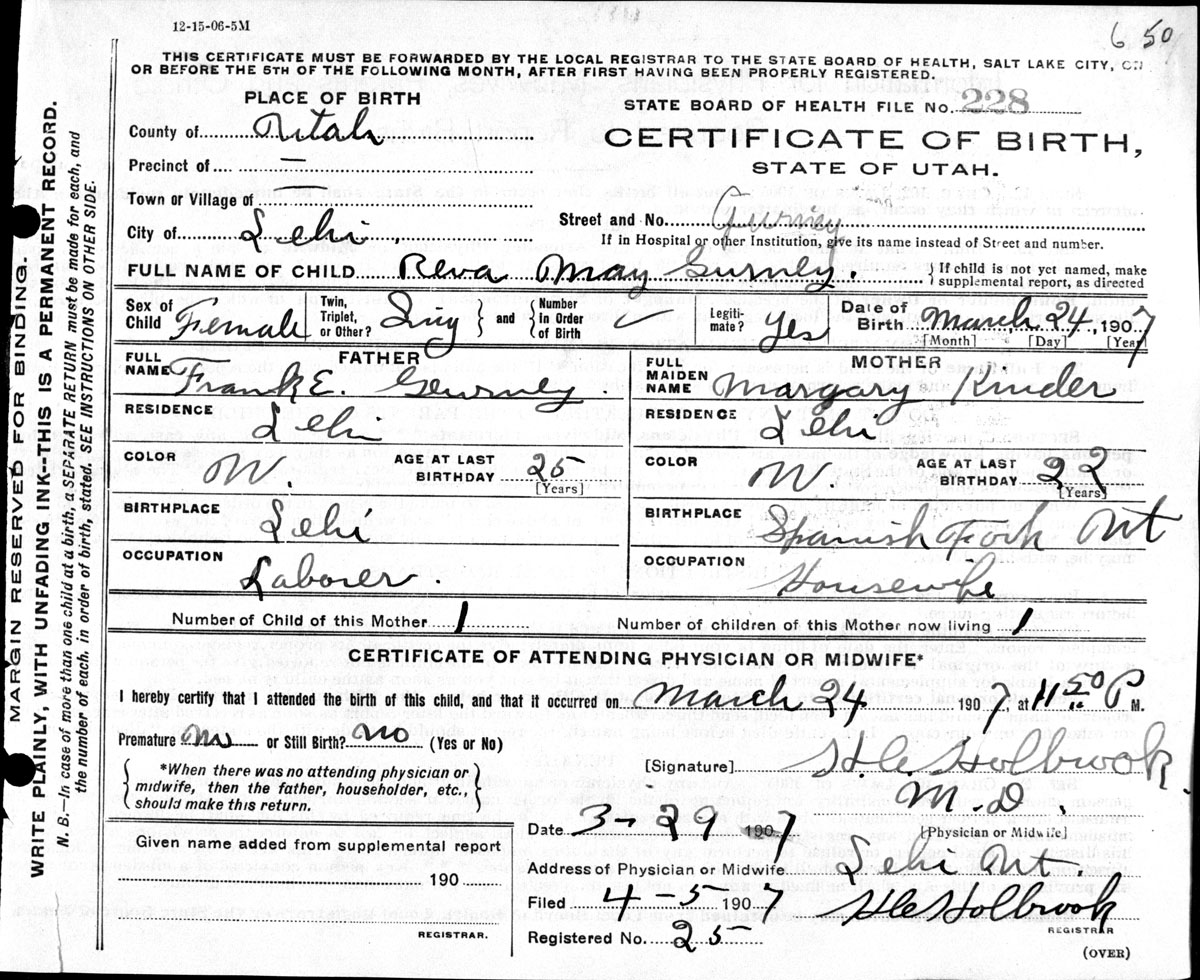 12-15-06-5M
6 50
THIS CERTIFICATE MUST BE FORWARDED BY THE LOCAL REGISTRAR TO THE STATE BOARD OF HEALTH, SALT LAKE CITY, ON
OR BEFORE THE 5TH OF THE FOLLOWING MONTH, AFTER FIRST HAVING BEEN PROPERLY REGISTERED.
PLACE OF BIRTH
STATE BOARD OF HEALTH FILE No. 228
County of Utah
CERTIFICATE OF BIRTH,
STATE OF UTAH.
Precinct of —
Town or Village of
Street and No. Gurney
City of Lehi
If in Hospital or other Institution, give its name instead of Street and number.
FULL NAME OF CHILD Reva May Gurney. { If child is not yet named, make
supplemental report, as directed
Sex of Child Female Twin, Triplet, or Other? } and { Number in Order of Birth ✓ Legitimate? Yes Date of Birth March 24, 1907
[Month] [Day] [Year]
FATHER
MOTHER
FULL NAME Frank E. Gurney.
FULL MAIDEN NAME Margary Kinder
RESIDENCE Lehi
RESIDENCE Lehi
COLOR W. AGE AT LAST BIRTHDAY 25 [Years]
COLOR W. AGE AT LAST BIRTHDAY 22 [Years]
BIRTHPLACE Lehi
BIRTHPLACE Spanish Fork Ut
OCCUPATION Laborer.
OCCUPATION Housewife
Number of Child of this Mother 1
Number of children of this Mother now living 1
CERTIFICATE OF ATTENDING PHYSICIAN OR MIDWIFE*
I hereby certify that I attended the birth of this child, and that it occurred on March 24 1907 at 11:50 P M.
Premature No or Still Birth? No (Yes or No)
*When there was no attending physician or
midwife, then the father, householder, etc.,
should make this return.
[Signature] H.C. Holbrook.
M.D
[Physician or Midwife]
Date 3-29 1907
Given name added from supplemental report
190
REGISTRAR.
Address of Physician or Midwife Lehi Ut
Filed 4-5 1907 HC Holbrook
REGISTRAR
Registered No. 25
(OVER)
MARGIN RESERVED FOR BINDING.
WRITE PLAINLY, WITH UNFADING INK-THIS IS A PERMANENT RECORD.
N. B.—In case of more than one child at a birth, a SEPARATE RETURN must be made for each, and
the number of each, in order of birth, stated. SEE INSTRUCTIONS ON OTHER SIDE.